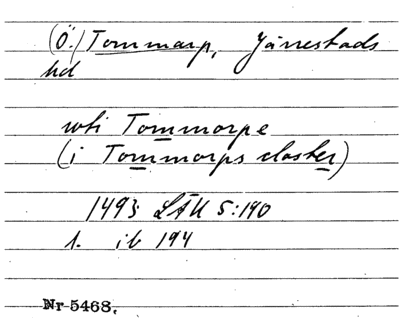 (Ö.) Tommarp, Järrestads
hd
wti Tommorpe
(i Tommorps closter)
1493 LÄU 5:190
1. ib 194
Nr 5468.